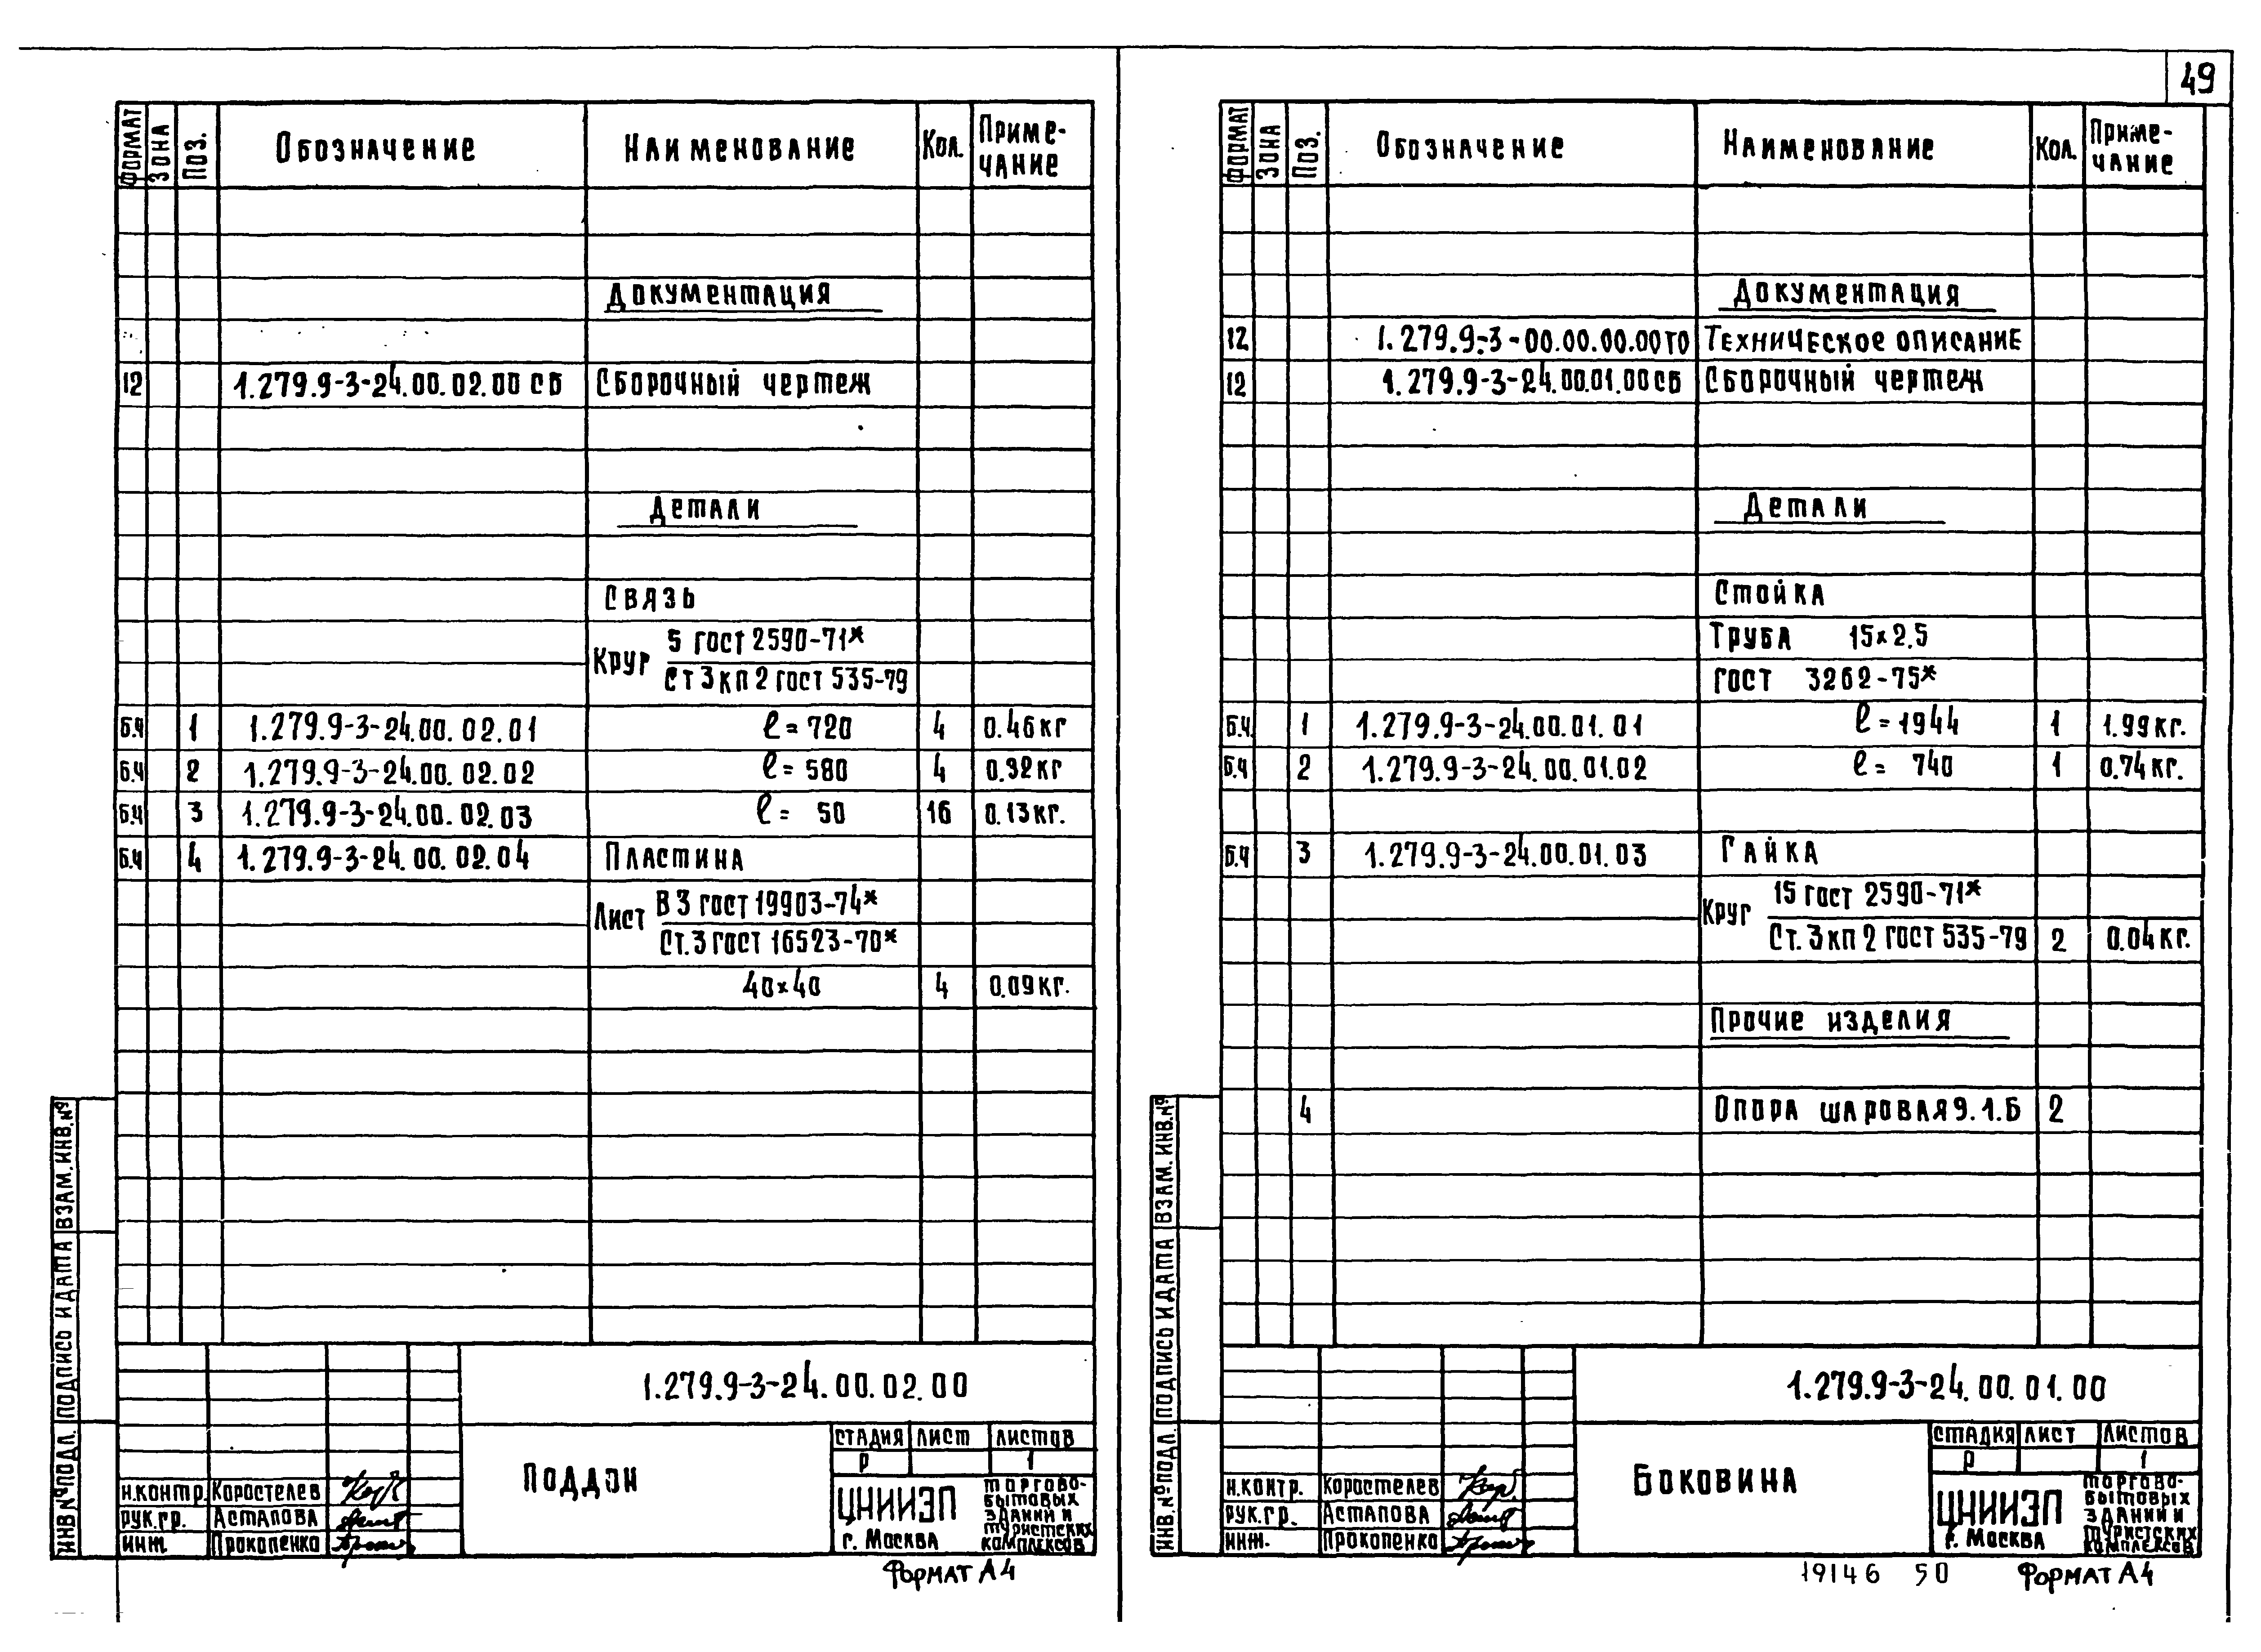 49
ФОРМАТ ЗОНА ПОЗ. ОБОЗНАЧЕНИЕ НАИМЕНОВАНИЕ КОЛ. ПРИМЕ-
ЧАНИЕ
ДОКУМЕНТАЦИЯ
12 1.279.9-3-24.00.02.00 СБ СБОРОЧНЫЙ ЧЕРТЕЖ
ДЕТАЛИ
СВЯЗЬ
КРУГ 5 ГОСТ 2590-71*
СТ 3 КП 2 ГОСТ 535-79
Б.Ч 1 1.279.9-3-24.00.02.01 ℓ=720 4 0.46 КГ
Б.Ч 2 1.279.9-3-24.00.02.02 ℓ=580 4 0.32 КГ
Б.Ч 3 1.279.9-3-24.00.02.03 ℓ= 50 16 0.13 КГ.
Б.Ч 4 1.279.9-3-24.00.02.04 ПЛАСТИНА
ЛИСТ В 3 ГОСТ 19903-74*
СТ.3 ГОСТ 16523-70*
40×40 4 0.09 КГ.
ИНВ.№ПОДЛ. ПОДПИСЬ И ДАТА ВЗАМ. ИНВ.№
1.279.9-3-24.00.02.00
ПОДДОН
СТАДИЯ ЛИСТ ЛИСТОВ
Р 1
Н.КОНТР. КОРОСТЕЛЕВ
РУК.ГР. АСТАПОВА
ИНЖ. ПРОКОПЕНКО
ЦНИИЭП
Г. МОСКВА
ТОРГОВО-
БЫТОВЫХ
ЗДАНИЙ И
ТУРИСТСКИХ
КОМПЛЕКСОВ
ФОРМАТ А4
ФОРМАТ ЗОНА ПОЗ. ОБОЗНАЧЕНИЕ НАИМЕНОВАНИЕ КОЛ. ПРИМЕ-
ЧАНИЕ
ДОКУМЕНТАЦИЯ
12 1.279.9-3-00.00.00.00ТО ТЕХНИЧЕСКОЕ ОПИСАНИЕ
12 1.279.9-3-24.00.01.00СБ СБОРОЧНЫЙ ЧЕРТЕЖ
ДЕТАЛИ
СТОЙКА
ТРУБА 15×2,5
ГОСТ 3262-75*
Б.Ч. 1 1.279.9-3-24.00.01.01 ℓ=1944 1 1.99 КГ.
Б.Ч 2 1.279.9-3-24.00.01.02 ℓ= 740 1 0.74 КГ.
Б.Ч 3 1.279.9-3-24.00.01.03 ГАЙКА
КРУГ 15 ГОСТ 2590-71*
СТ. 3 КП 2 ГОСТ 535-79 2 0.04 КГ.
ПРОЧИЕ ИЗДЕЛИЯ
4 ОПОРА ШАРОВАЯ 9.1.Б 2
ИНВ.№ПОДЛ. ПОДПИСЬ И ДАТА ВЗАМ. ИНВ.№
1.279.9-3-24.00.01.00
БОКОВИНА
СТАДИЯ ЛИСТ ЛИСТОВ
Р 1
Н.КОНТР. КОРОСТЕЛЕВ
РУК.ГР. АСТАПОВА
ИНЖ. ПРОКОПЕНКО
ЦНИИЭП
Г. МОСКВА
ТОРГОВО-
БЫТОВЫХ
ЗДАНИЙ И
ТУРИСТСКИХ
КОМПЛЕКСОВ
19146 50 ФОРМАТ А4